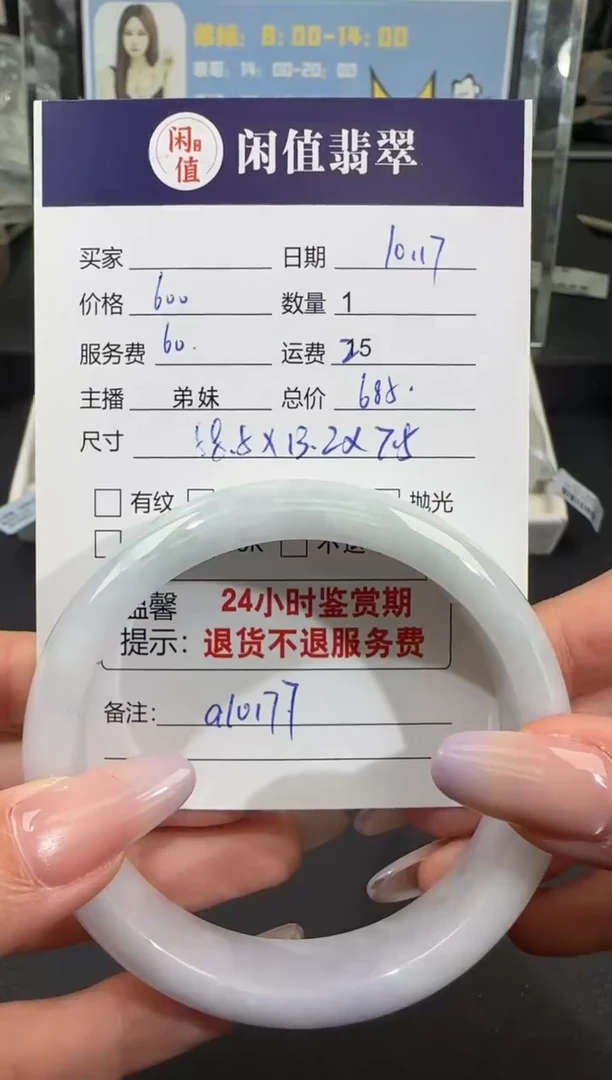 弟妹：8：00-14：00
表哥：14：00-20：00
闲值 闲值翡翠
买家 日期 10.17
价格 600 数量 1
服务费 60. 运费 25
主播 弟妹 总价 685.
尺寸 58.5X13.2X7.5
有纹 抛光
不退
温馨 24小时鉴赏期
提示：退货不退服务费
备注： a10177